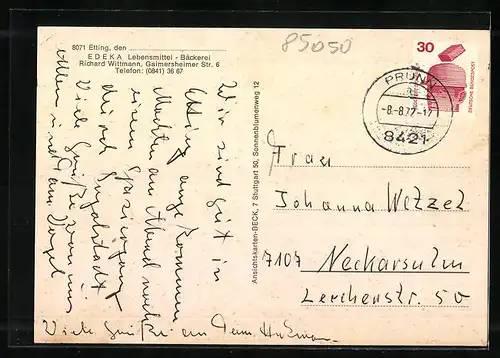 8071 Etting, den
EDEKA Lebensmittel - Bäckerei
Richard Wittmann, Gaimersheimer Str. 6
Telefon: (0841) 36 67
85050
30
DEUTSCHE BUNDESPOST
PRUNN
a
-8.-8.77-17
8421
Ansichtskarten-BECK, 7 Stuttgart 50, Sonnenblumenweg 12
Wir sind gut in
Etting angekommen
Machten am Abend noch
einen Spaziergang
durch Ingolstadt
Viele Grüße von uns
allen und
Viele Grüße an
Frau
Johanna Wetzel
7107 Neckarsulm
Lerchenstr. 50